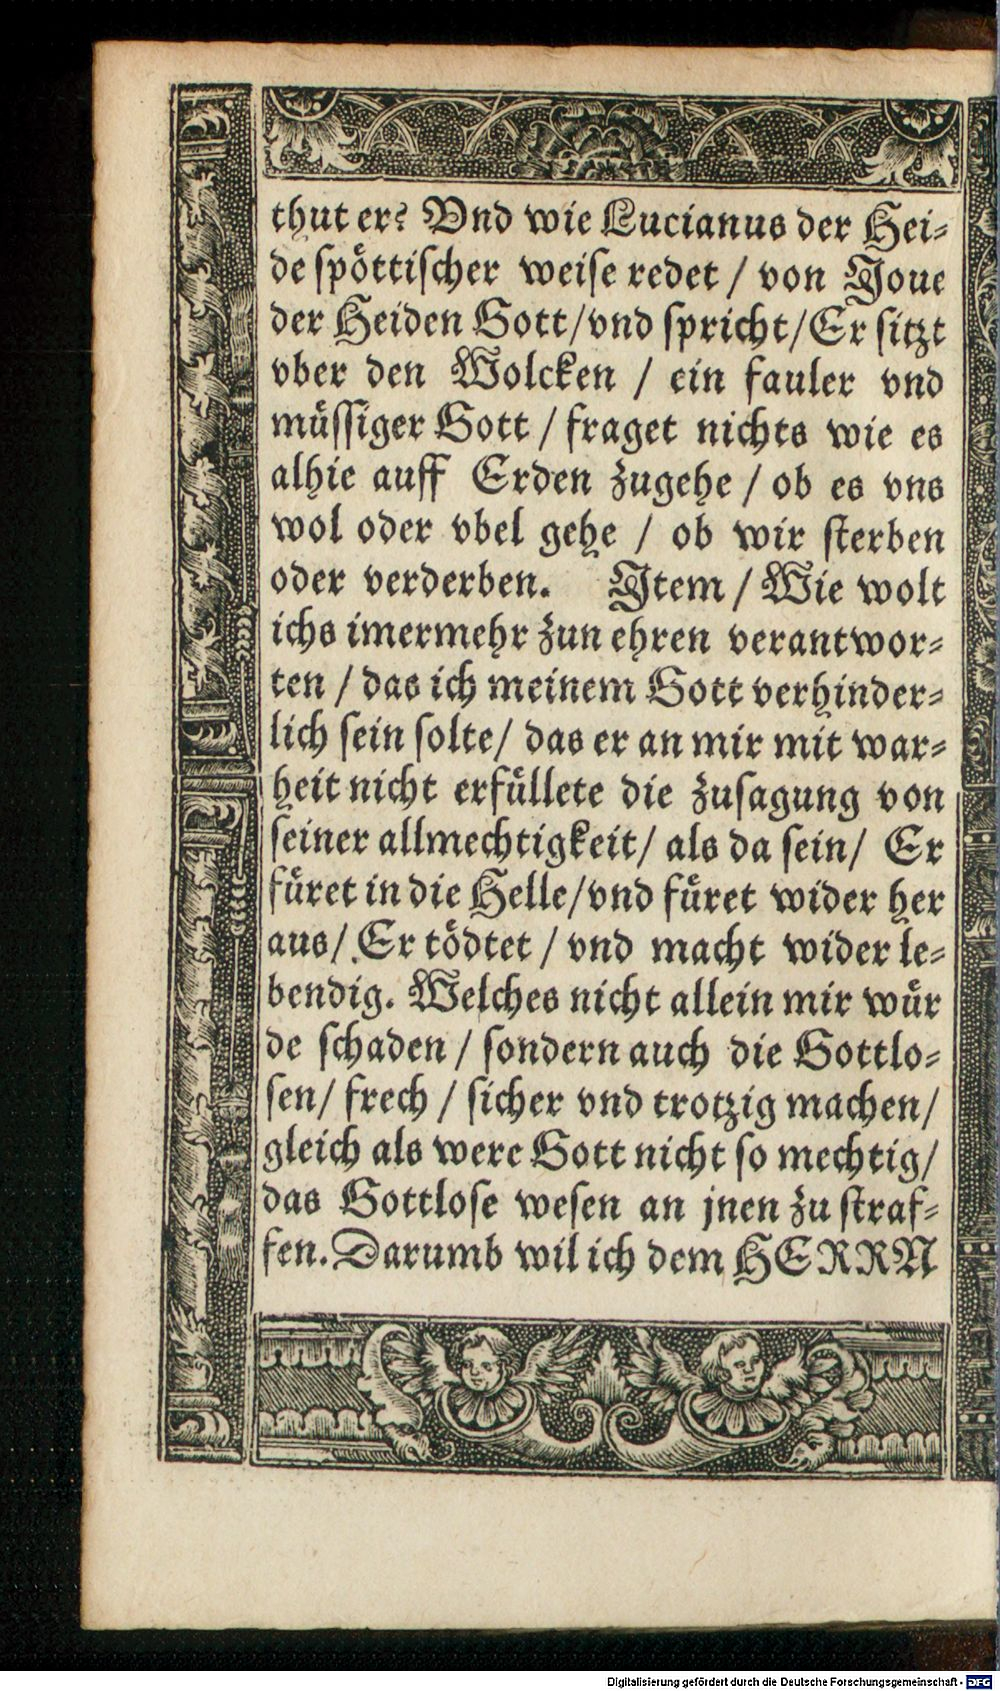 thut er? Vnd wie Lucianus der Hei⸗
de spöttischer weise redet / von Joue
der Heiden Gott/vnd spricht/Er sitzt
vber den Wolcken / ein fauler vnd
müssiger Gott / fraget nichts wie es
alhie auff Erden zugehe / ob es vns
wol oder vbel gehe / ob wir sterben
oder verderben. Jtem / Wie wolt
ichs imermehr zun ehren verantwor⸗
ten / das ich meinem Gott verhinder⸗
lich sein solte/ das er an mir mit war⸗
heit nicht erfüllete die zusagung von
seiner allmechtigkeit/ als da sein/ Er
füret in die Helle/vnd füret wider her
aus/ Er tödtet / vnd macht wider le⸗
bendig. Welches nicht allein mir wür
de schaden / sondern auch die Gottlo⸗
sen/ frech / sicher vnd trotzig machen/
gleich als were Gott nicht so mechtig/
das Gottlose wesen an jnen zu straf⸗
fen. Darumb wil ich dem HERRN
Digitalisierung gefördert durch die Deutsche Forschungsgemeinschaft - DFG